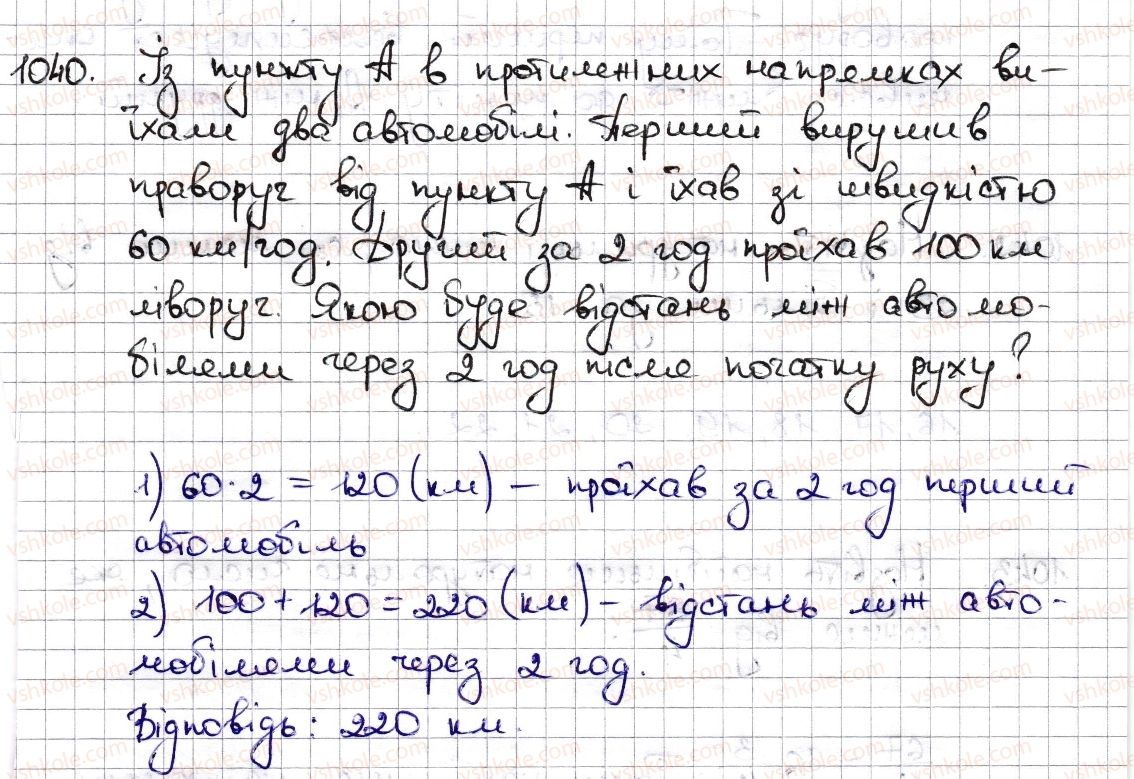 1040. Із пункту А в протилежних напрямках ви-
їхали два автомобілі. Перший вирушив
праворуч від пункту А і їхав зі швидкістю
60 км/год. Другий за 2 год проїхав 100 км
ліворуч. Якою буде відстань між автомо-
білями через 2 год після початку руху?
1) 60·2 = 120 (км) – проїхав за 2 год перший
автомобіль
2) 100 + 120 = 220 (км) – відстань між авто-
мобілями через 2 год.
Відповідь: 220 км.